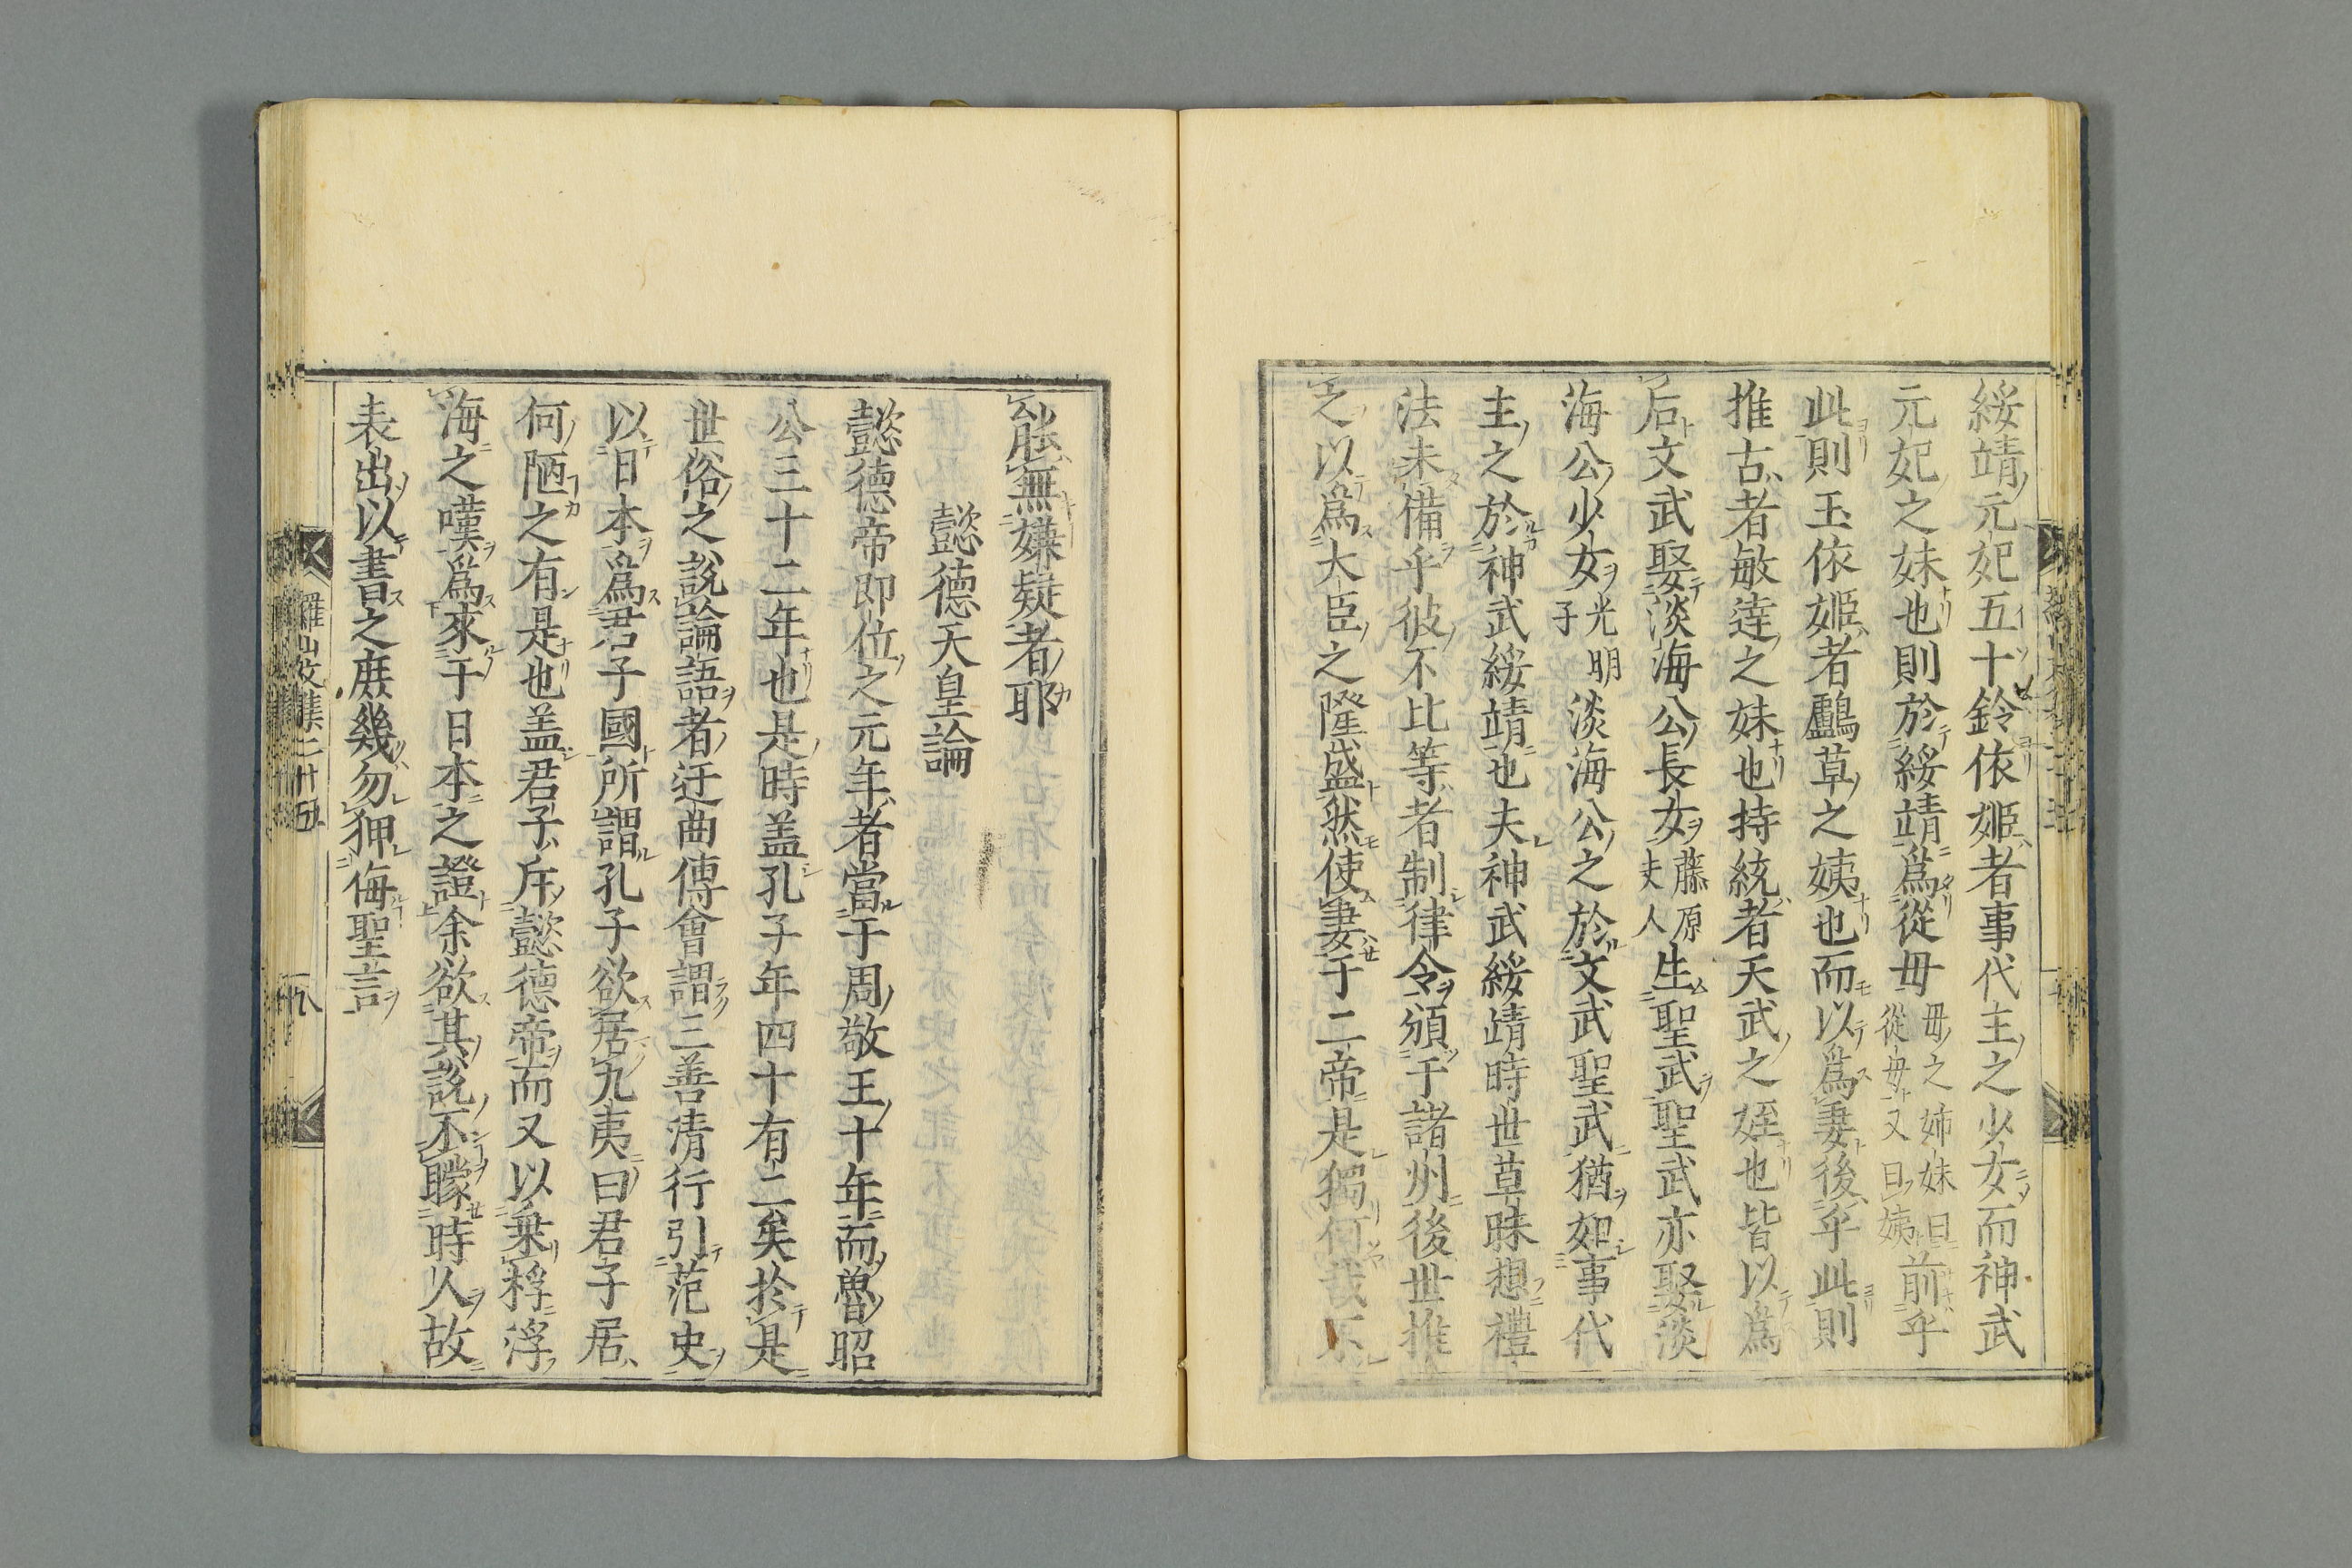 綏靖元妃五十鈴依姫者事代主之少女而神武
元妃之妹也則於綏靖爲從母母之姉妹曰從母又曰姨前乎
此則玉依姫者鸕草之姨也而以爲妻後乎此則
推古者敏達之妹也持統者天武之姪也皆以爲
后文武娶淡海公長女藤原夫人生聖武聖武亦娶淡
海公少女光明子淡海公之於文武聖武猶如事代
主之於神武綏靖也夫神武綏靖時世草昧想禮
法未備乎彼不比等者制律令頒于諸州後世推
之以爲大臣之隆盛然使妻于二帝是獨何哉
然無嫌疑者耶
懿德天皇論
懿德帝即位之元年者當于周敬王十年而魯昭
公三十二年也是時盖孔子年四十有二矣於是
世俗之說論語者迂曲傳會謂三善淸行引范史
以日本爲君子國所謂孔子欲居九夷曰君子居
何陋之有是也盖君子斥懿德帝而又以乗桴浮
海之嘆爲來于日本之證余欲其說不矇時人故
表出以書之庶幾勿狎侮聖言
羅山文集二十五
八